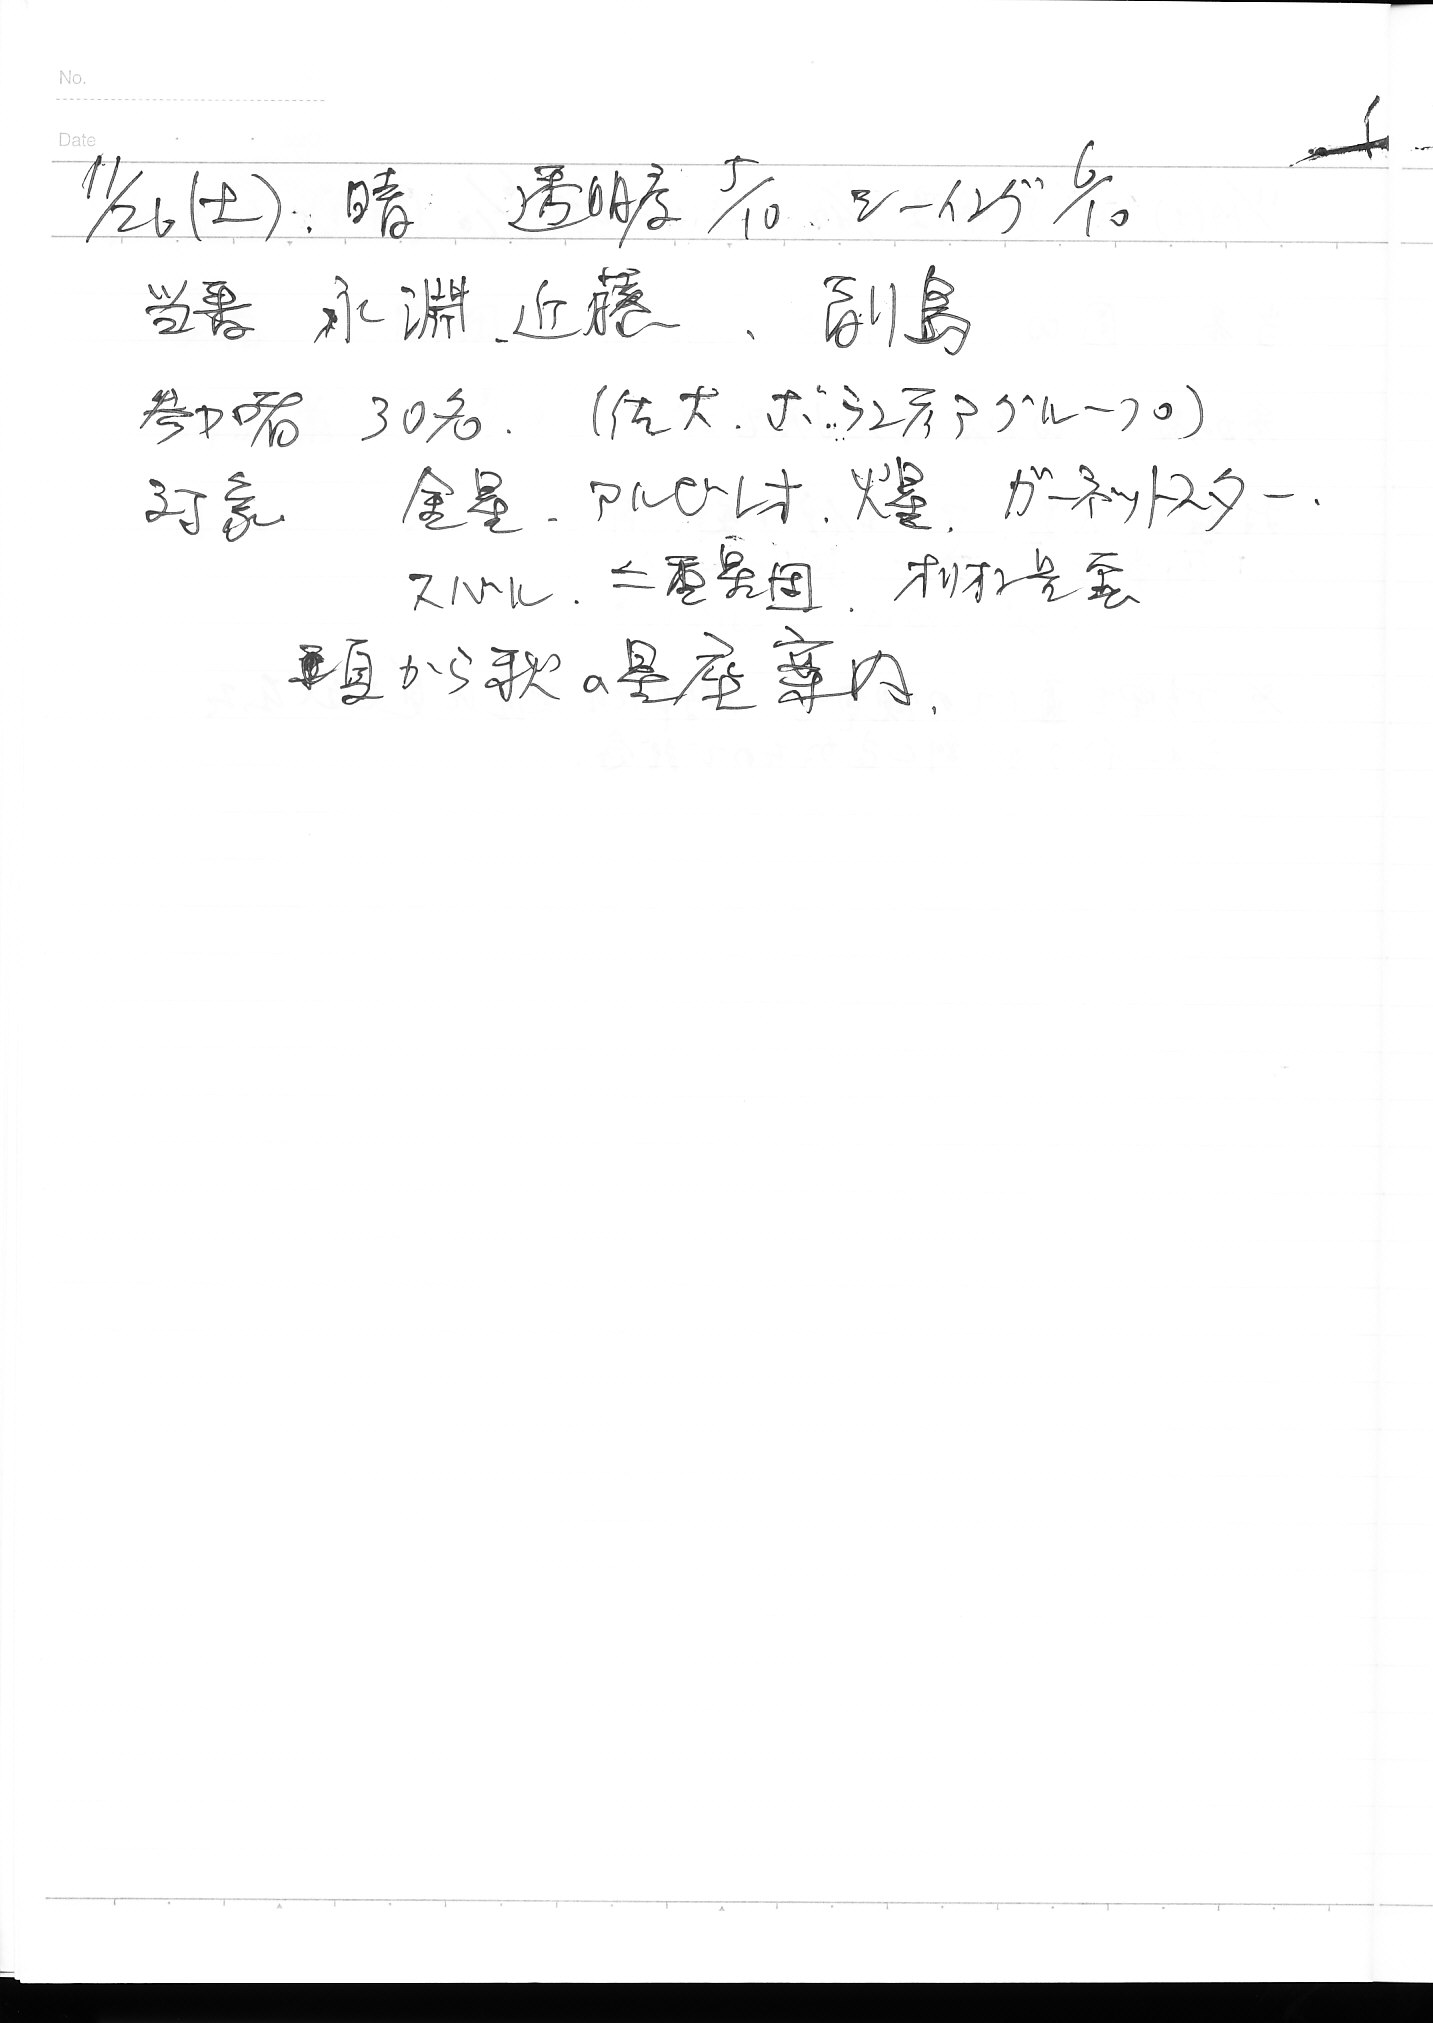 No.
Date
11/26(土). 晴 透明度 5/10. シーイング 6/10
当番 永淵、近藤、副島
参加者 30名. (佐大.ボランティアグループ)
対象 金星. アルビレオ. . ガーネットスター.
スバル. 二重星団. オリオン星雲
夏から秋の星座案内.